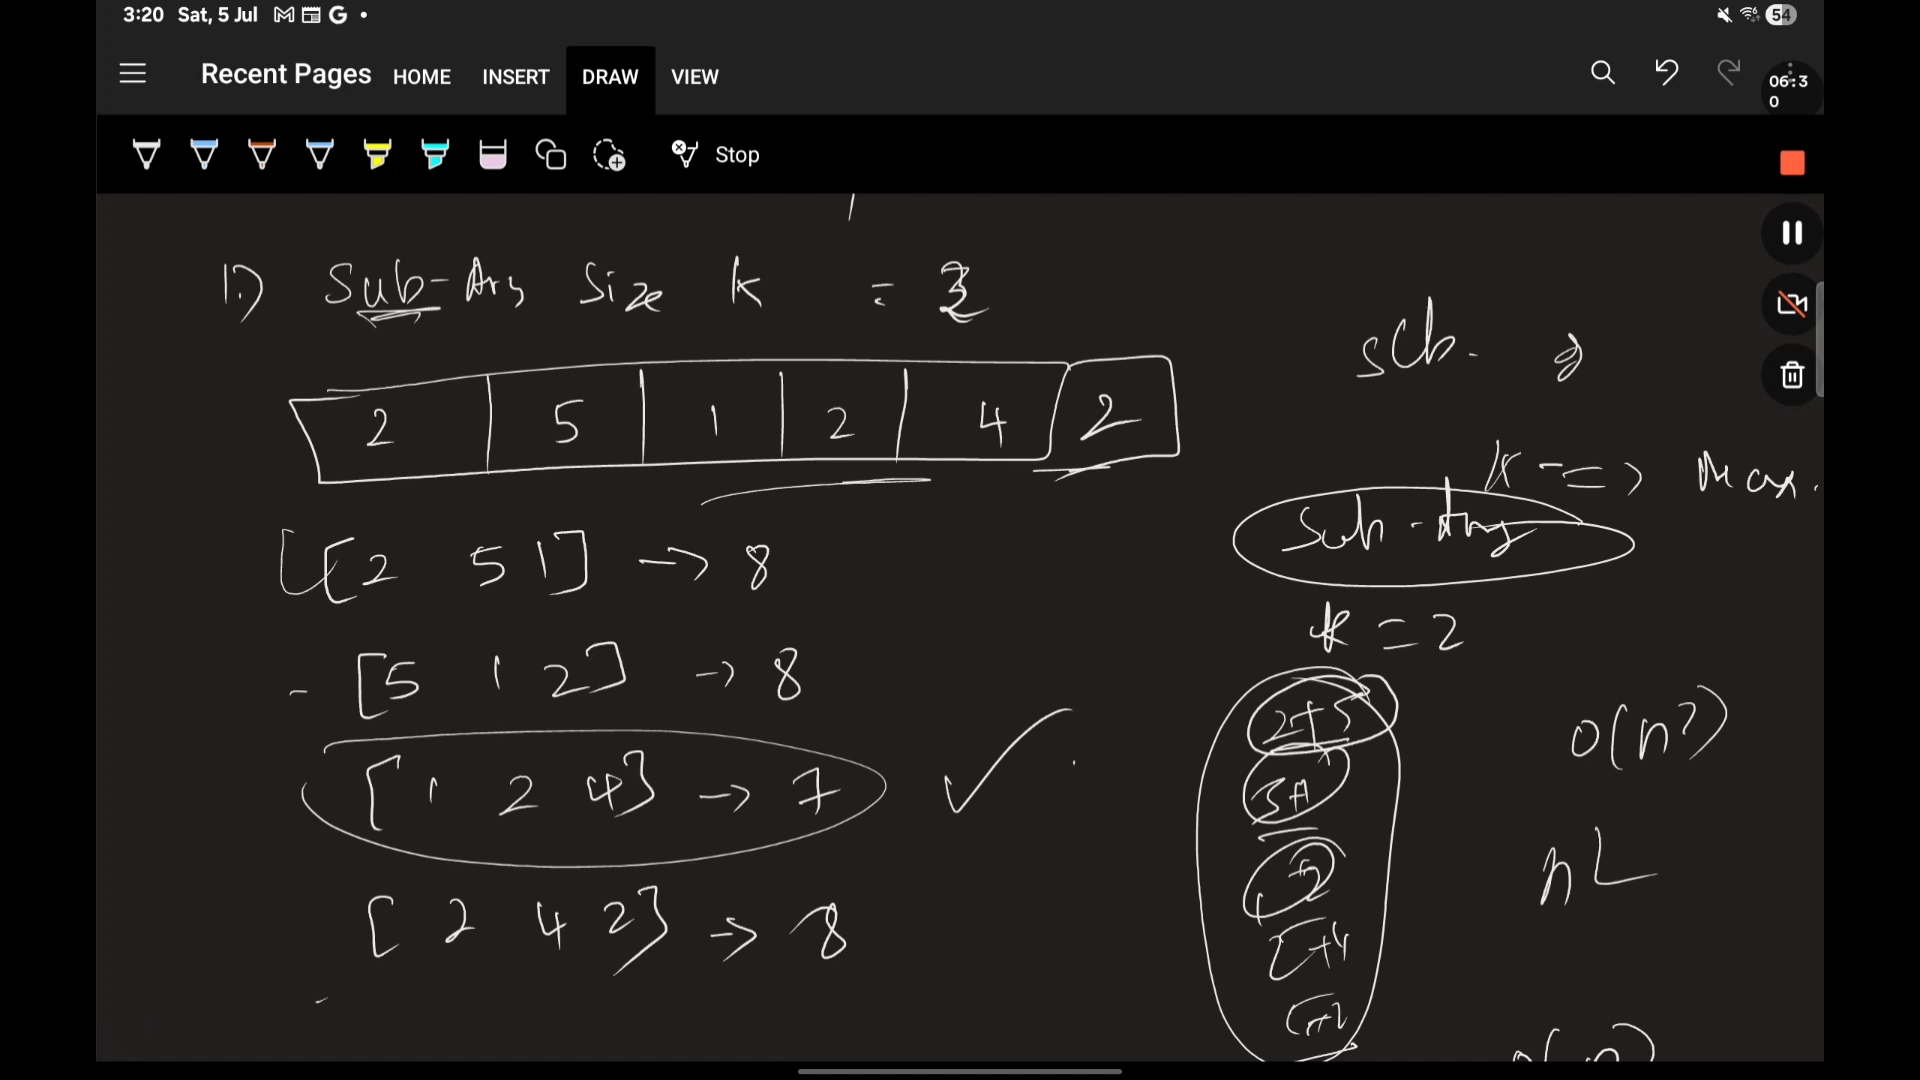 3:20 Sat, 5 Jul
54
Recent Pages HOME INSERT DRAW VIEW
06:3
0
Stop
1.) Sub-Arr Size k = 3
2 5 1 2 4 2
[[2 5 1] -> 8
- [5 1 2] -> 8
[1 2 4] -> 7
[2 4 2] -> 8
k => Max.
Sub-Array
k = 2
2+5
5+1
2+4
O(n²)